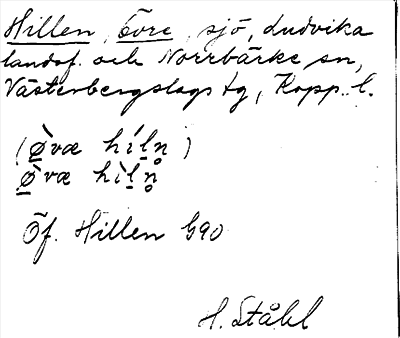 Hillen, Övre, sjö, Ludvika
landsf. och Norrbärke sn,
Västerbergslags tg, Kopp. l.
(Ø̀væ híḷn̥)
Ø̀væ hìḷn̥
Öf. Hillen G90
H. Ståhl